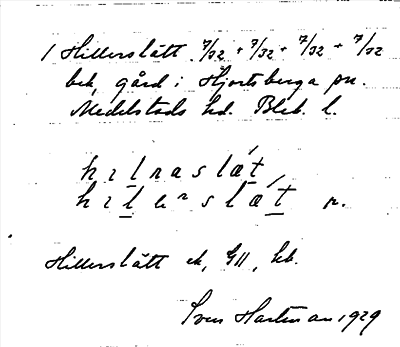 1 Hillerslätt 7/32 + 7/32 + 7/32 + 7/32
bek. gård i Hjortsberga sn.
Medelstads hd. Blek. l.
hɪlnaslæ̀t,
hɪlenslæ̀t r.
Hillerslätt ek, GII, hb.
Sven Hartman 1929